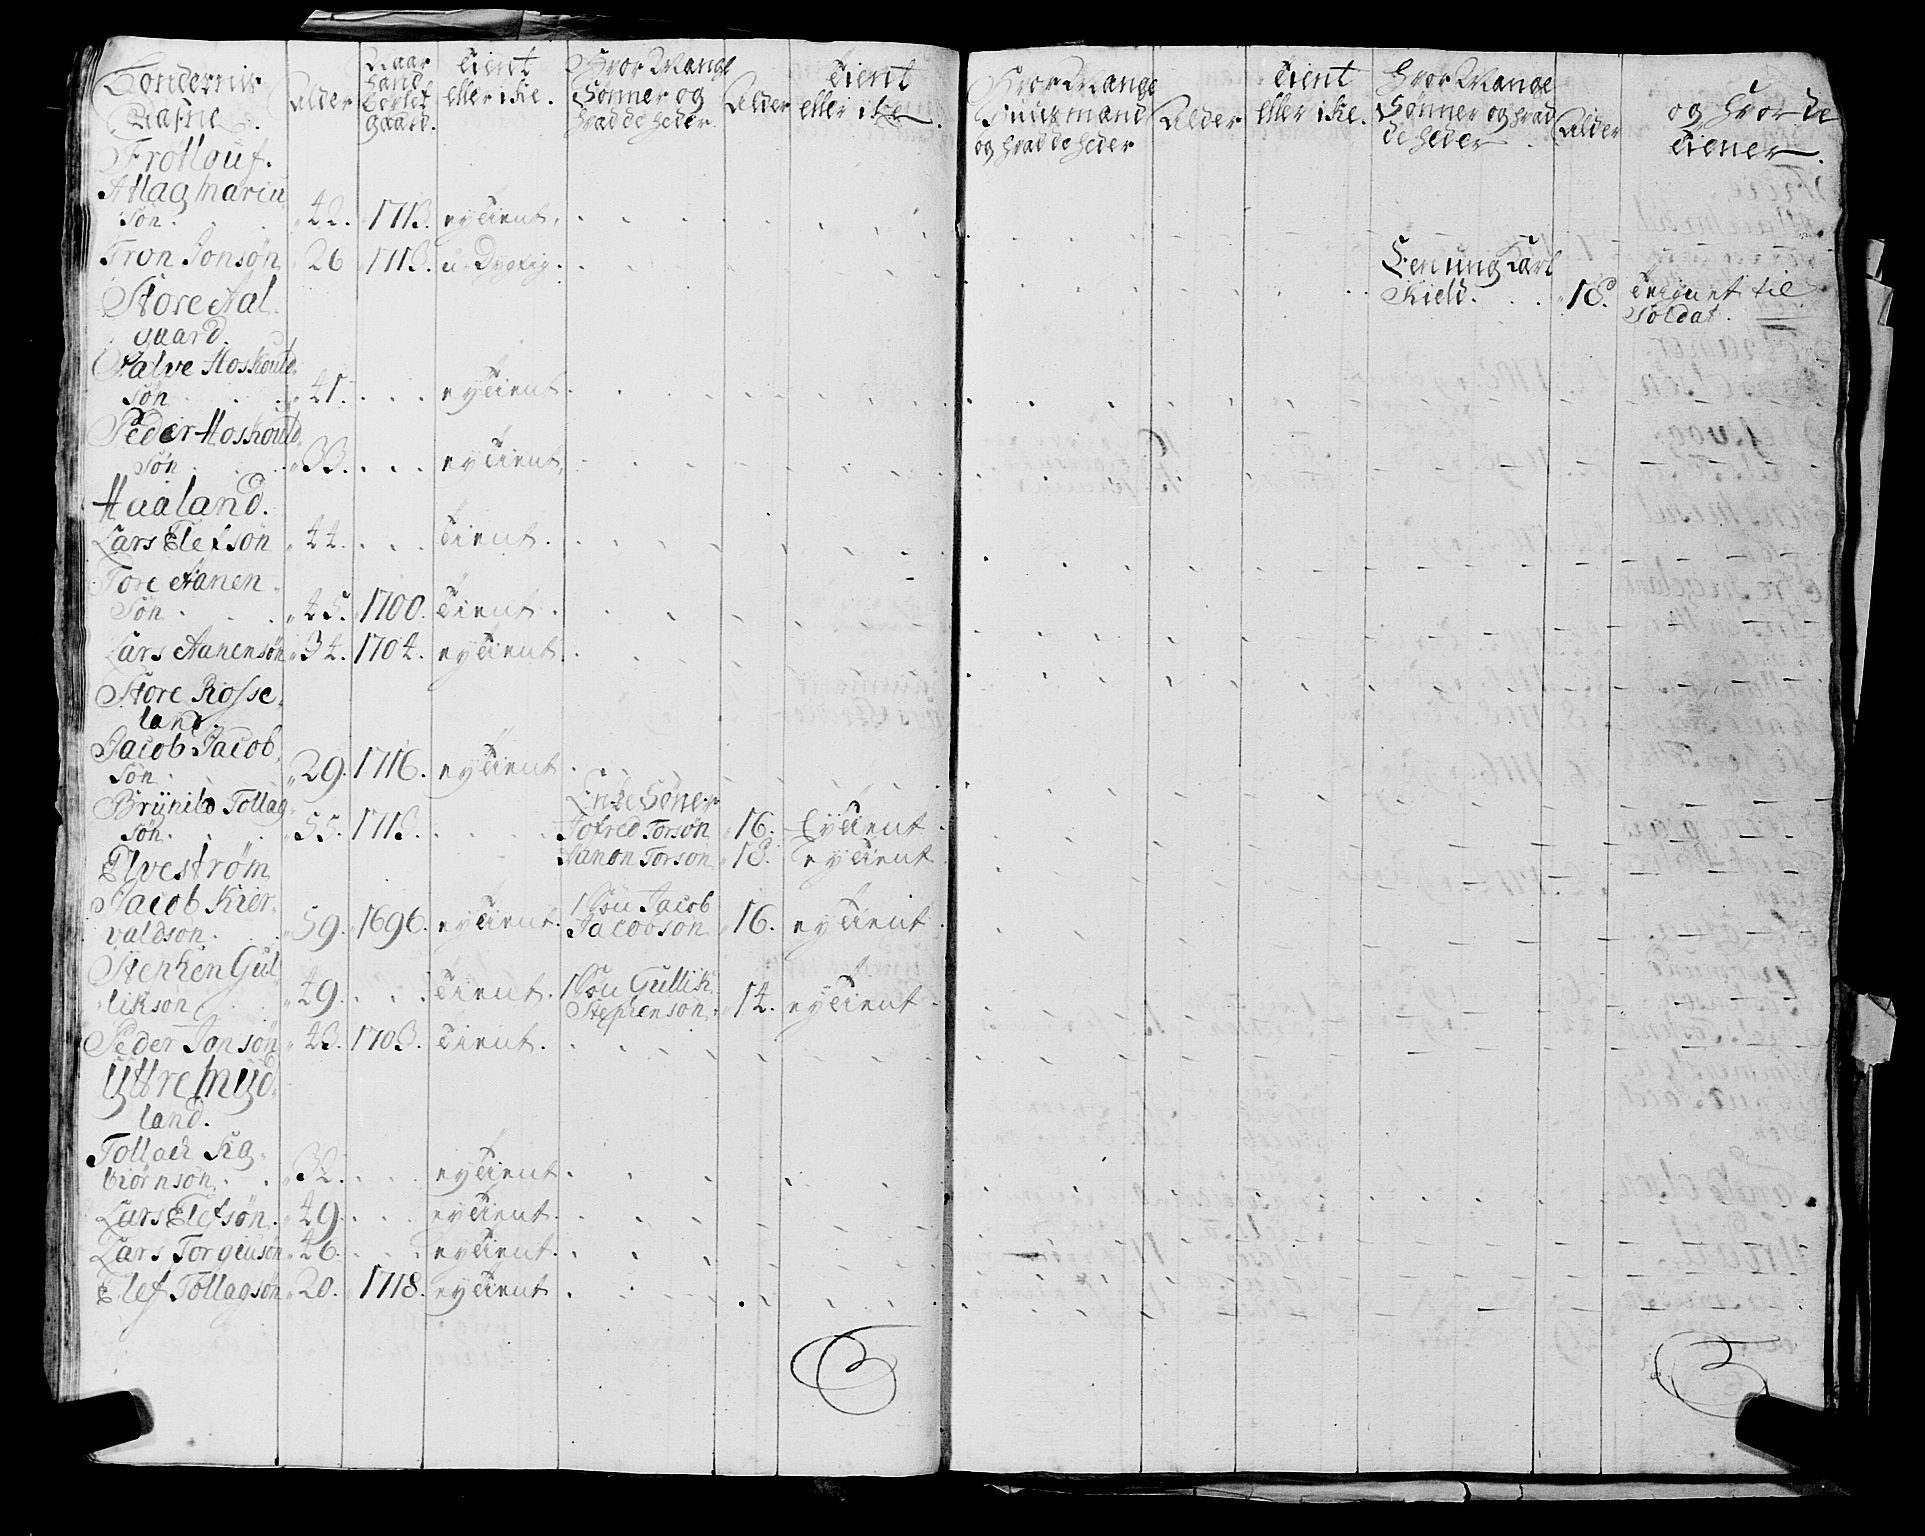 Bondernis
Nafne.
Alder
Naar
hand
bortet
gaard.
tient
eller iKe.
Hvor Mange
Sønner og
hvad de heder.
Alder
tient
eller ike.
Hvor Mange
Huusmænd
og hvad de heder
Alder
tient
eller ike.
Hvor Mange
Sønner og hvad
de heder
Alder
og hvor de
tiener.
Frøtlouf.
Atlag
Søn. 42. 1713. ey tient.
Tron Jonsøn 26 1713. u-Dygtig.
Een ung Karl
Kield. 18. teignet til
Soldat.
Store Aal
gaard.
Salve Hoskould
Søn 41. ey tient
Peder Hoskould
Søn 33. ey tient.
Haaland.
Lars Elefsøn 44. tient.
Tore Aanen
Søn. 45. 1700. tient.
Lars Aanensøn 34. 1704. ey tient.
Store Rosse
land.
Jacob Jacob
Søn. 29. 1716. ey tient
Brynild Tollag
Søn. 55. 1713.
Enke Søner
Jofred Torsøn 16. Ey tient
Aanon Torsøn 18. ey tient
Elvestrøm
Jacob Kier
valdsøn. 59. 1696. ey tient.
1 Søn Jacob
Jacobsøn 16. ey tient
Stephen Gul
liksøn 49. tient.
1 Søn Gullik
Stephensøn 14. ey tient
Peder Jonsøn 43. 1703. tient.
Yttre Myd
land.
Tollack
biørnsøn. 32. ey tient
Lars Elefsøn. 49. ey tient
Lars Torgiusøn 46. ey tient.
Elef Tollagsøn 20. 1718. ey tient